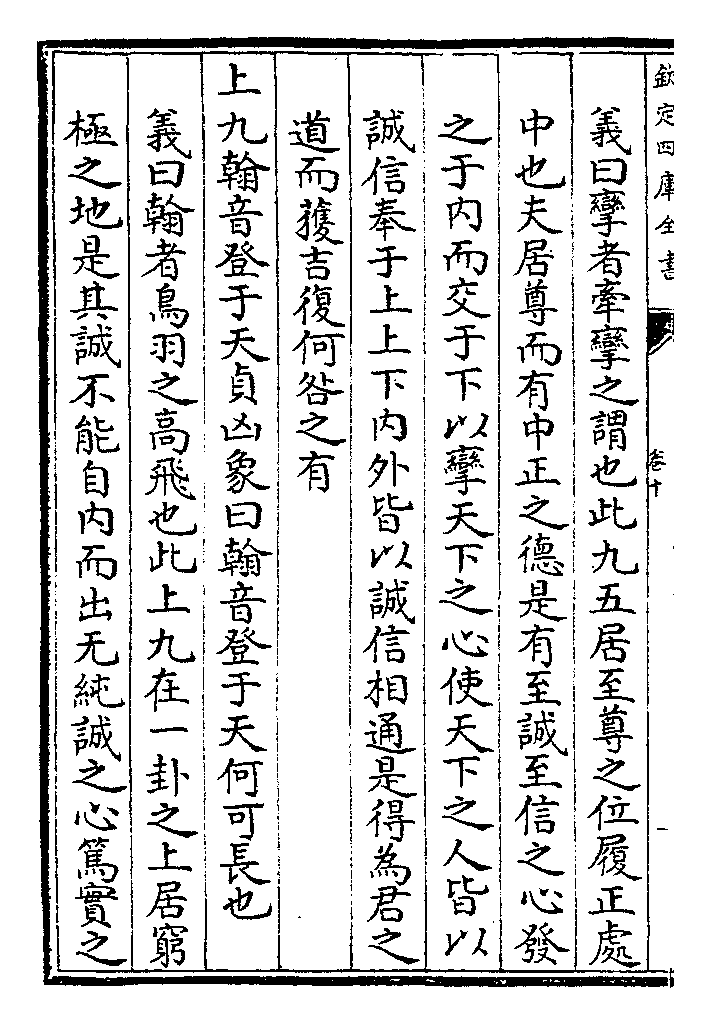 欽定四庫全書
卷十
義曰孿者牽孿之謂也此九五居至尊之位履正處
中也夫居尊而有中正之德是有至誠至信之心發
之于内而交于下以孿天下之心使天下之人皆以
誠信奉于上上下内外皆以誠信相通是得為君之
道而獲吉復何咎之有
上九翰音登于天貞凶象曰翰音登于天何可長也
義曰翰者鳥羽之高飛也此上九在一卦之上居窮
極之地是其誠不能自内而出无純誠之心篤實之